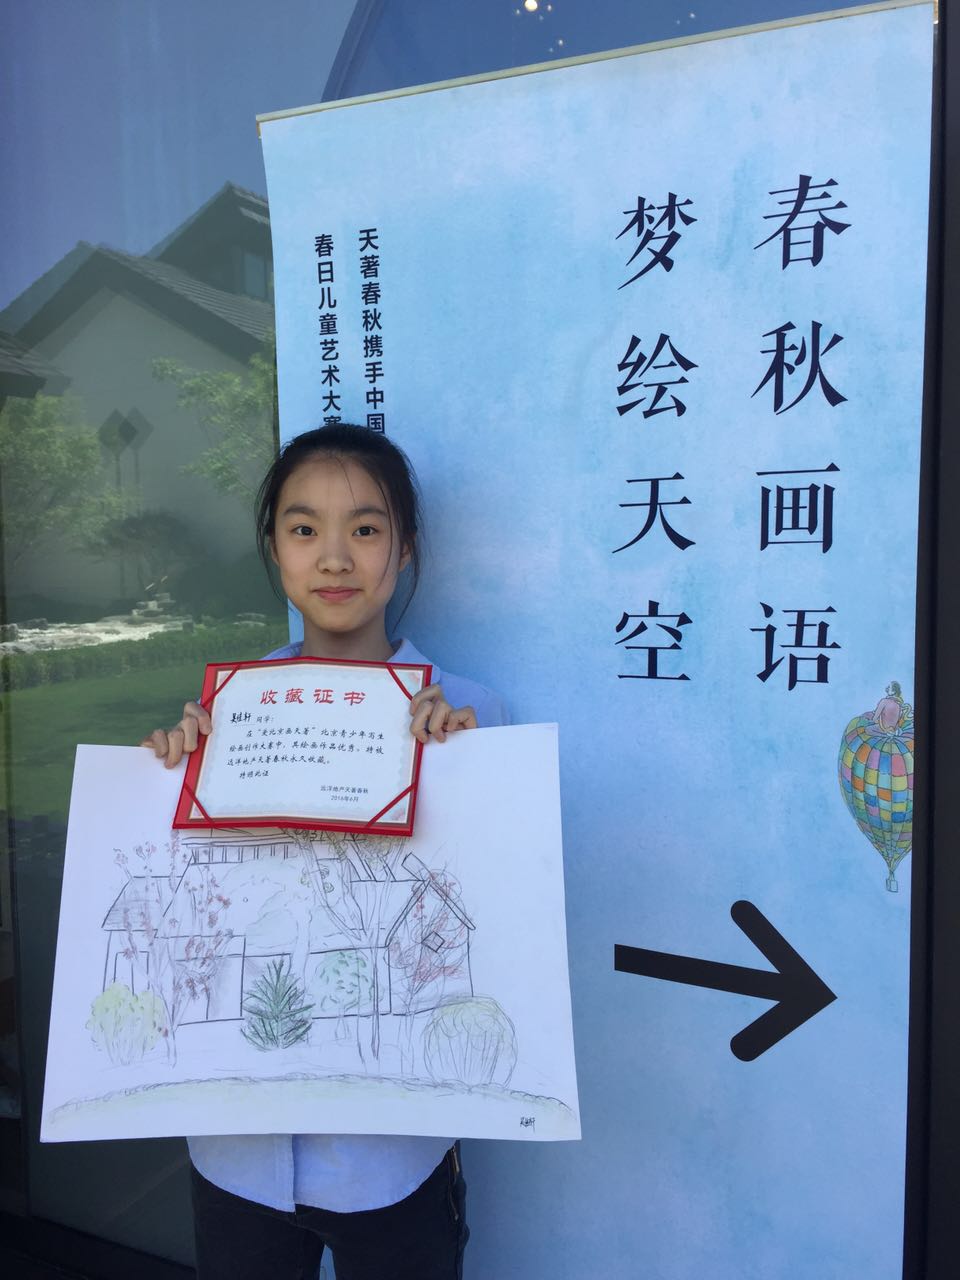 春秋画语
梦绘天空
天著春秋携手中国
春日儿童艺术大赛
收藏证书
同学：
在“爱北京画天著”北京青少年写生
绘画创作大赛中，其绘画作品优秀。特被
远洋地产天著春秋永久收藏。
特颁此证
远洋地产天著春秋
2016年6月